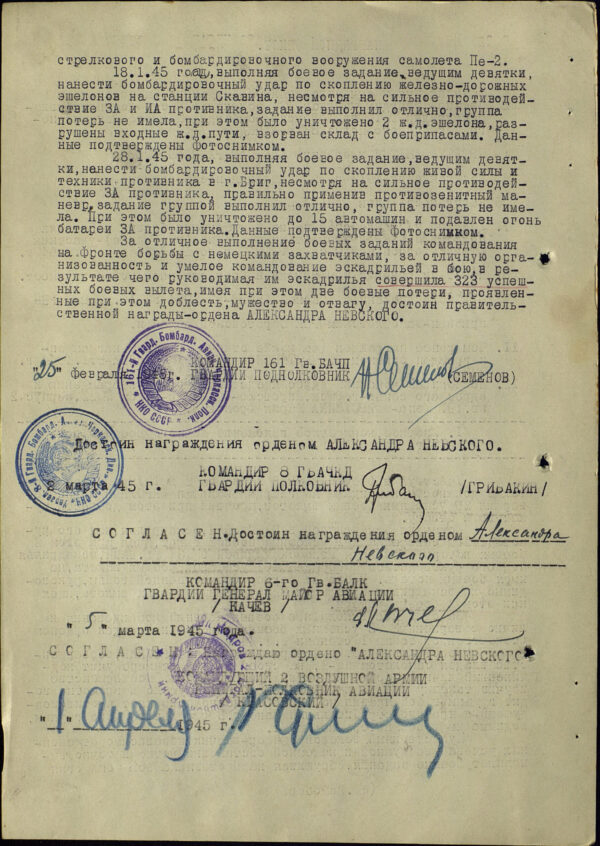 стрелкового и бомбардировочного вооружения самолета Пе-2.
18.1.45 года, выполняя боевое задание, ведущим девятки,
нанести бомбардировочный удар по скоплению железно-дорожных
эшелонов на станции Скавина, несмотря на сильное противодей-
ствие ЗА и ИА противника, задание выполнил отлично, группа
потерь не имела, при этом было уничтожено 2 ж.д.эшелона, раз-
рушены входные ж.д.пути, взорван склад с боеприпасами. Дан-
ные подтверждены фотоснимком.
28.1.45 года, выполняя боевое задание, ведущим девят-
ки, нанести бомбардировочный удар по скоплению живой силы и
техники противника в г.Бриг, несмотря на сильное противодей-
ствие ЗА противника, правильно применив противозенитный ма-
невр, задание группой выполнил отлично, группа потерь не име-
ла. При этом было уничтожено до 15 автомашин и подавлен огонь
батареи ЗА противника. Данные подтверждены фотоснимком.
За отличное выполнение боевых заданий командования
на фронте борьбы с немецкими захватчиками, за отличную орга-
низованность и умелое командование эскадрильей в бою, в ре-
зультате чего руководимая им эскадрилья совершила 323 успеш-
ных боевых вылета, имея при этом две боевые потери, проявлен-
ные при этом доблесть, мужество и отвагу, достоин правитель-
ственной награды-ордена АЛЕКСАНДРА НЕВСКОГО.
КОМАНДИР 161 Гв.БАЧП
"25" февраля 1945г. ГВАРДИИ ПОДПОЛКОВНИК (СЕМЕНОВ)
Достоин награждения орденом АЛЕКСАНДРА НЕВСКОГО.
КОМАНДИР 8 ГБАЧКД
2 марта 45 г. ГВАРДИИ ПОЛКОВНИК /ГРИБАКИН/
СОГЛАСЕН. Достоин награждения орденом Александра
Невского
КОМАНДИР 6-го Гв.БАЛК
ГВАРДИИ ГЕНЕРАЛ МАЙОР АВИАЦИИ
/КАЧЕВ/
"5" марта 1945 года.
СОГЛАСЕН ордено "АЛЕКСАНДРА НЕВСКОГО"
2 ВОЗДУШНОЙ АРМИИ
АВИАЦИИ
/КРАСОВСКИЙ/
"1" Апреля 1945 г.